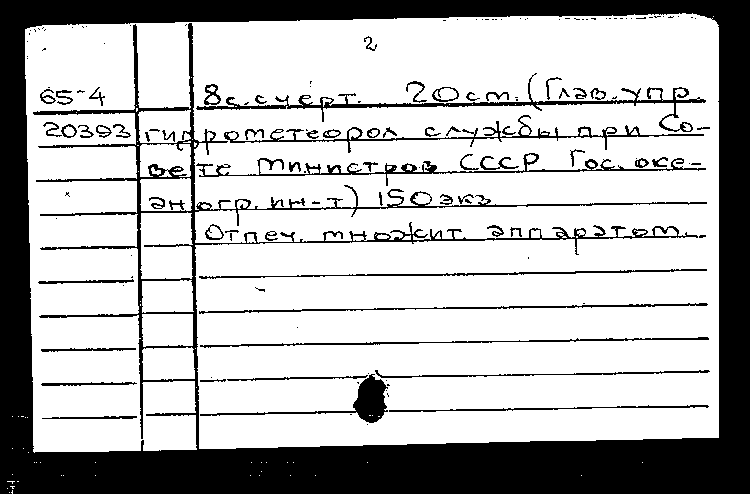 2
65-4 8с.с черт. 20см. (Глав. упр.
20393 гидрометеорол службы при Со-
вете Министров СССР. Гос. оке-
аногр. ин-т) 150 экз
Отпеч. множит. аппаратом.